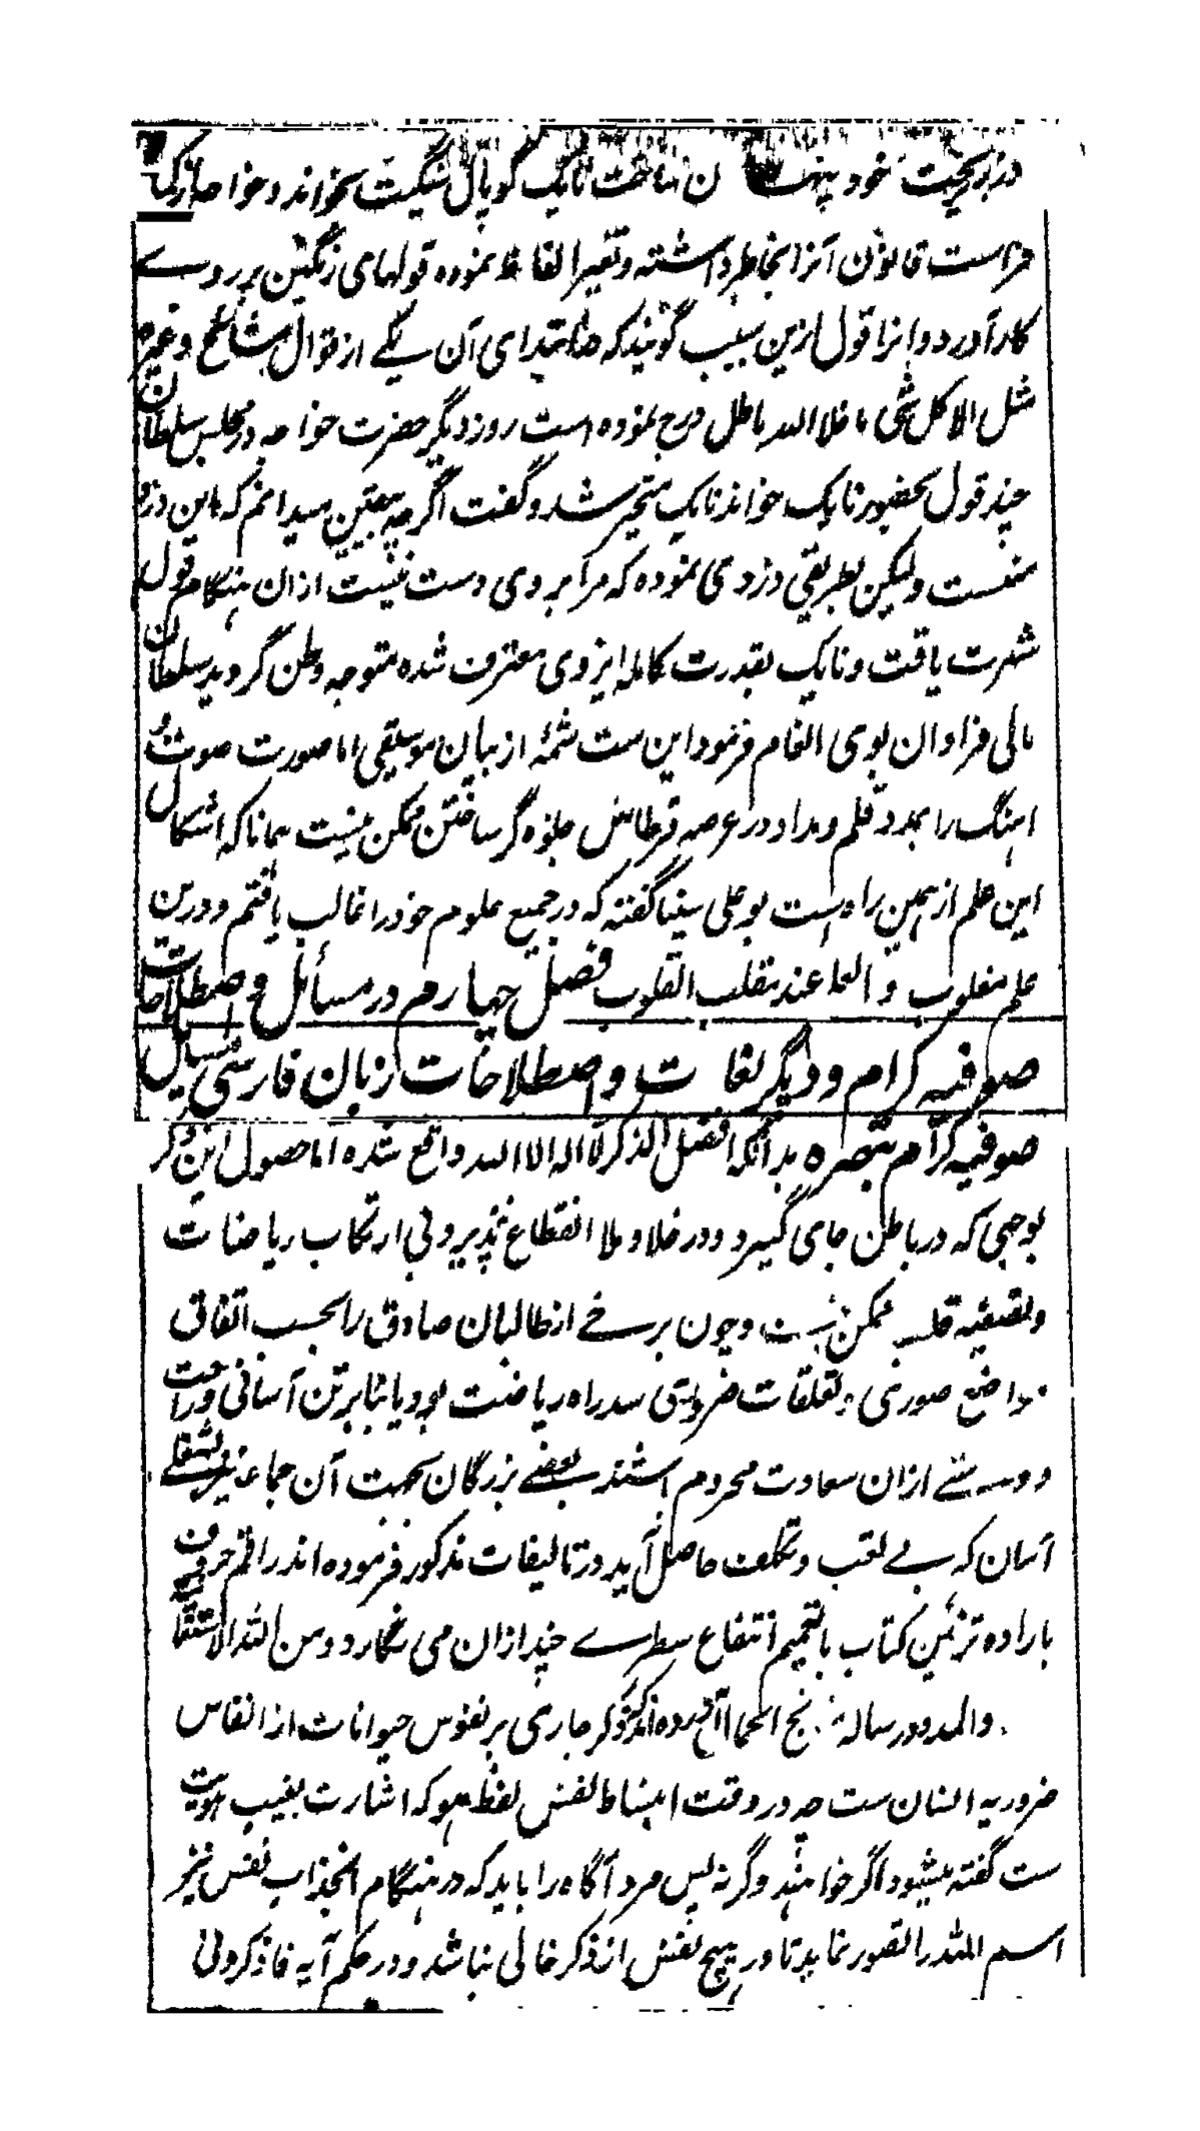 در زیر تخت خود پنهان ساخت نایک گوپال سنگیت میخواند و خواجه از کمال
فراست قانون آنرا بخاطر داشته و تغییر الفاظ نموده قولهای رنگین بر روے
کار آورد و انرا قول ازین سبب گویند که ابتدای آن یکے از اقوال مشائخ وغیره
مثل الا کل شی ما خلا الله باطل درج نموده است روز دیگر حضرت خواجه در مجلس سلطان
چند قول بحضور نایک خواند نایک متحیر شد و گفت اگرچه بیقین میدانم که این دزد
منست ولیکن بطریقی دزدی نموده که مرا بروی دست نیست ازان هنگام قول
شهرت یافت و نایک بقدرت کامله ایزدی معترف شده متوجه وطن گردید سلطان
مالی فراوان بوی انعام فرمود این ست شمهٔ از بیان موسیقی اما صورت صوت و
اهنگ را بمدد قلم و مداد در عرصه قرطاس جلوه گر ساختن ممکن نیست همانا که اشکال
این علم از همین راه است بو علی سینا گفته که در جمیع علوم خود را غالب یافتم و درین
علم مغلوب و العلم عند مقلب القلوب فصل چهارم در مسائل و اصطلاحات
صوفیه کرام و دیگر لغات و اصطلاحات زبان فارسی مسائل
صوفیه کرام تبصره بدانکه افضل الذکر لا اله الا الله واقع شده اما حصول این ذکر
بوجهی که در باطن جای گیرد و در خلا و ملا انقطاع نپذیرد بی ارتکاب ریاضات
و تصفیه قلب ممکن نیست و چون برخے از طالبان صادق را بحسب اتفاق
مواضع صوری و تعلقات ضروری سد راه ریاضت بود یا بنا بر تن آسانی و راحت
دوستے ازان سعادت محروم اشتند بعضے بزرگان بجهت آن جماعه نیز شغلے
آسان که بے تعب و تکلف حاصل آید در تالیفات مذکور فرموده اند راقم حروف
باراده تزئین کتاب با تعمیم انتفاع سطرے چند ازان می نگارد و من الله الاستقامه
والمدد در رساله آورده اند که ذکر جاری بر نفوس حیوانات از انفاس
ضروریه انسان ست چه در وقت انبساط نفس لفظ هو که اشارت بغیب هویت
ست گفته میشود اگر خواهند وگرنه پس مرد آگاه را باید که در هنگام انجذاب نفس نیز
اسم الله را تصور نماید تا در هیچ نفس از ذکر خالی نباشد و در حکم آیه فاذکرونی